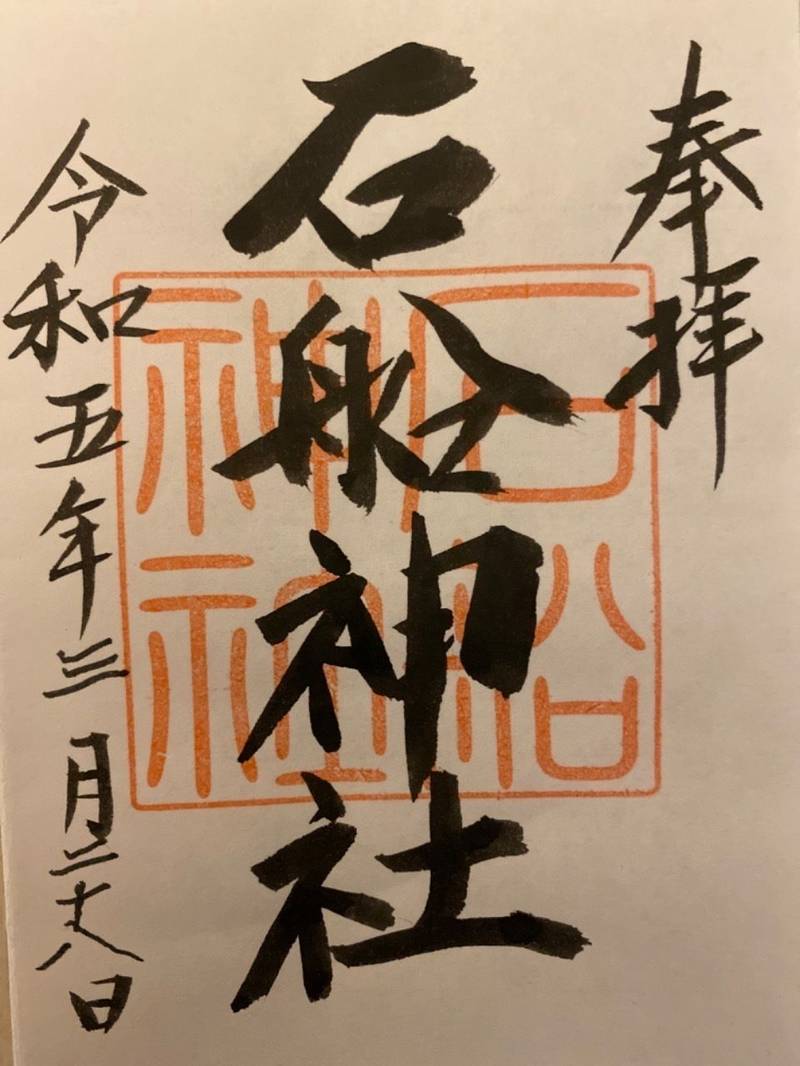 奉拝
石船神社
石船神社
令和五年三月二十八日